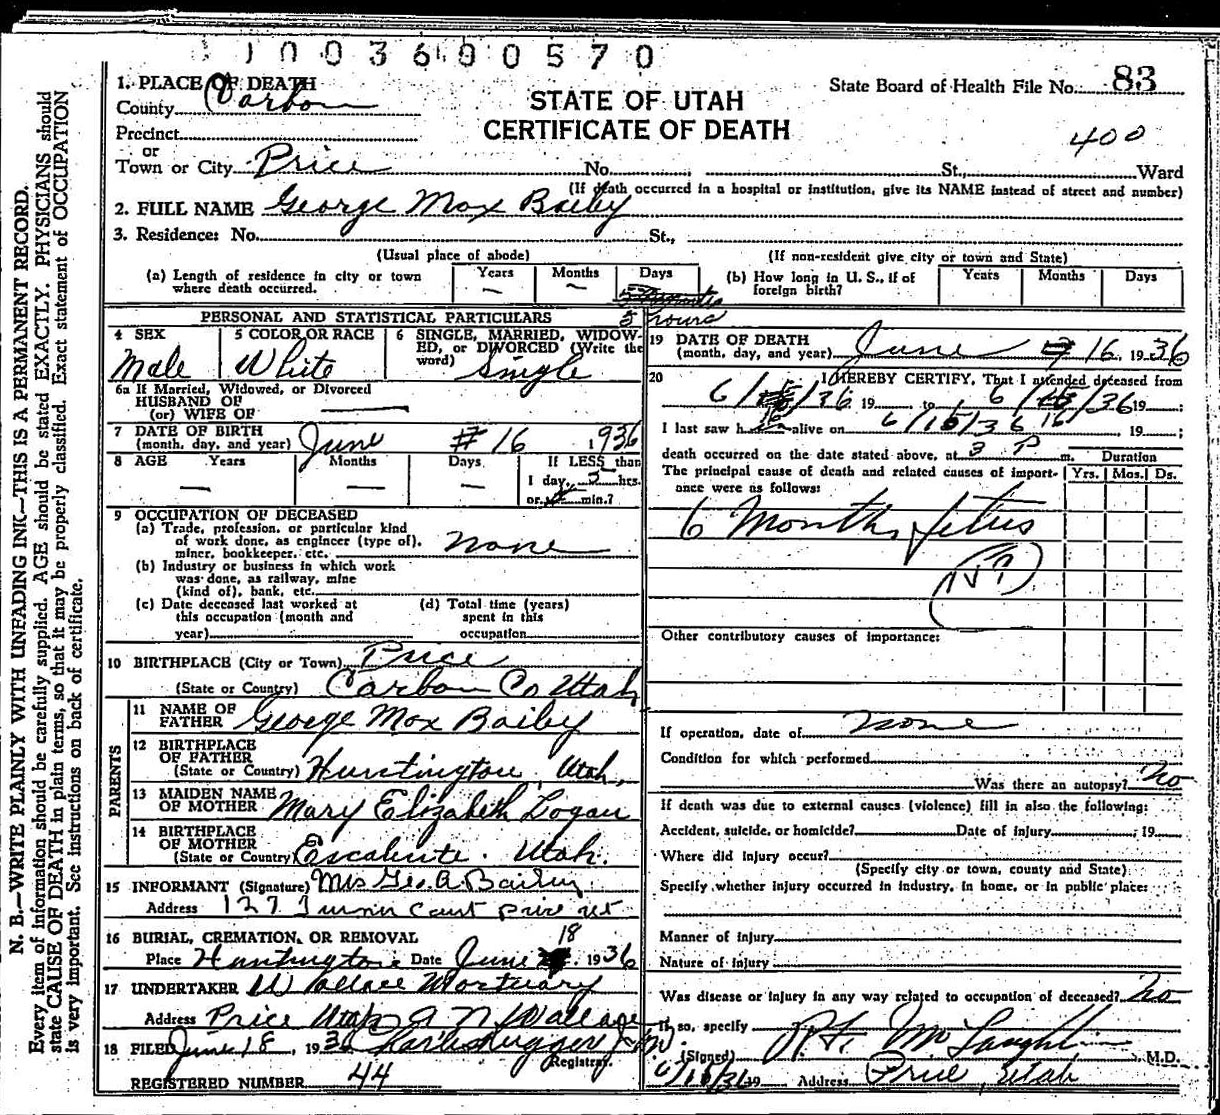 1003690570
1. PLACE OF DEATH
County Carbon
State Board of Health File No. 83
STATE OF UTAH
CERTIFICATE OF DEATH
400
Precinct
or
Town or City Price No. , St., Ward
(If death occurred in a hospital or institution, give its NAME instead of street and number)
2. FULL NAME George Max Bailey
3. Residence: No. St.,
(Usual place of abode) (If non-resident give city or town and State)
(a) Length of residence in city or town where death occurred. Years — Months — Days
5 hours
(b) How long in U. S., if of foreign birth? Years Months Days
PERSONAL AND STATISTICAL PARTICULARS
4 SEX Male
5 COLOR OR RACE White
6 SINGLE, MARRIED, WIDOWED, or DIVORCED (Write the word) Single
6a If Married, Widowed, or Divorced
HUSBAND OF
(or) WIFE OF —
7 DATE OF BIRTH
(month, day, and year) June 16 1936
8 AGE Years — Months — Days — If LESS than
1 day, 5 hrs.
or min.?
9 OCCUPATION OF DECEASED
(a) Trade, profession, or particular kind
of work done, as engineer (type of),
miner, bookkeeper, etc. none
(b) Industry or business in which work
was done, as railway, mine
(kind of), bank, etc.
(c) Date deceased last worked at
this occupation (month and
year)
(d) Total time (years)
spent in this
occupation
10 BIRTHPLACE (City or Town) Price
(State or Country) Carbon Co Utah
PARENTS
11 NAME OF
FATHER George Max Bailey
12 BIRTHPLACE
OF FATHER
(State or Country) Huntington, Utah,
13 MAIDEN NAME
OF MOTHER Mary Elizabeth Logan
14 BIRTHPLACE
OF MOTHER
(State or Country) Escalante. Utah.
15 INFORMANT (Signature) Mrs Geo. A. Bailey
Address 127 Court Price Ut
16 BURIAL, CREMATION, OR REMOVAL
Place Huntington Date June 18 1936
17 UNDERTAKER Wallace Mortuary
Address Price Utah A N Wallace
18 FILED June 18, 1936
Registrar.
REGISTERED NUMBER 44
19 DATE OF DEATH
(month, day, and year) June 16, 1936
20 I HEREBY CERTIFY, That I attended deceased from
6/16/36 19 , to 6/16/36 19 ;
I last saw h alive on 6/16/36 19 ;
death occurred on the date stated above, at 3 P m. Duration
The principal cause of death and related causes of importance were as follows: Yrs. Mos. Ds.
6 Months fetus
Other contributory causes of importance:
If operation, date of none
Condition for which performed
Was there an autopsy? No
If death was due to external causes (violence) fill in also the following:
Accident, suicide, or homicide? Date of injury ; 19
Where did injury occur?
(Specify city or town, county and State)
Specify whether injury occurred in industry, in home, or in public place:
Manner of injury
Nature of injury
Was disease or injury in any way related to occupation of deceased? No
If so, specify
(Signed) Mc Laughlin M.D.
6/16/36 19 Address Price, Utah
N. B.—WRITE PLAINLY WITH UNFADING INK—THIS IS A PERMANENT RECORD.
Every item of information should be carefully supplied. AGE should be stated EXACTLY. PHYSICIANS should
state CAUSE OF DEATH in plain terms, so that it may be properly classified. Exact statement of OCCUPATION
is very important. See instructions on back of certificate.